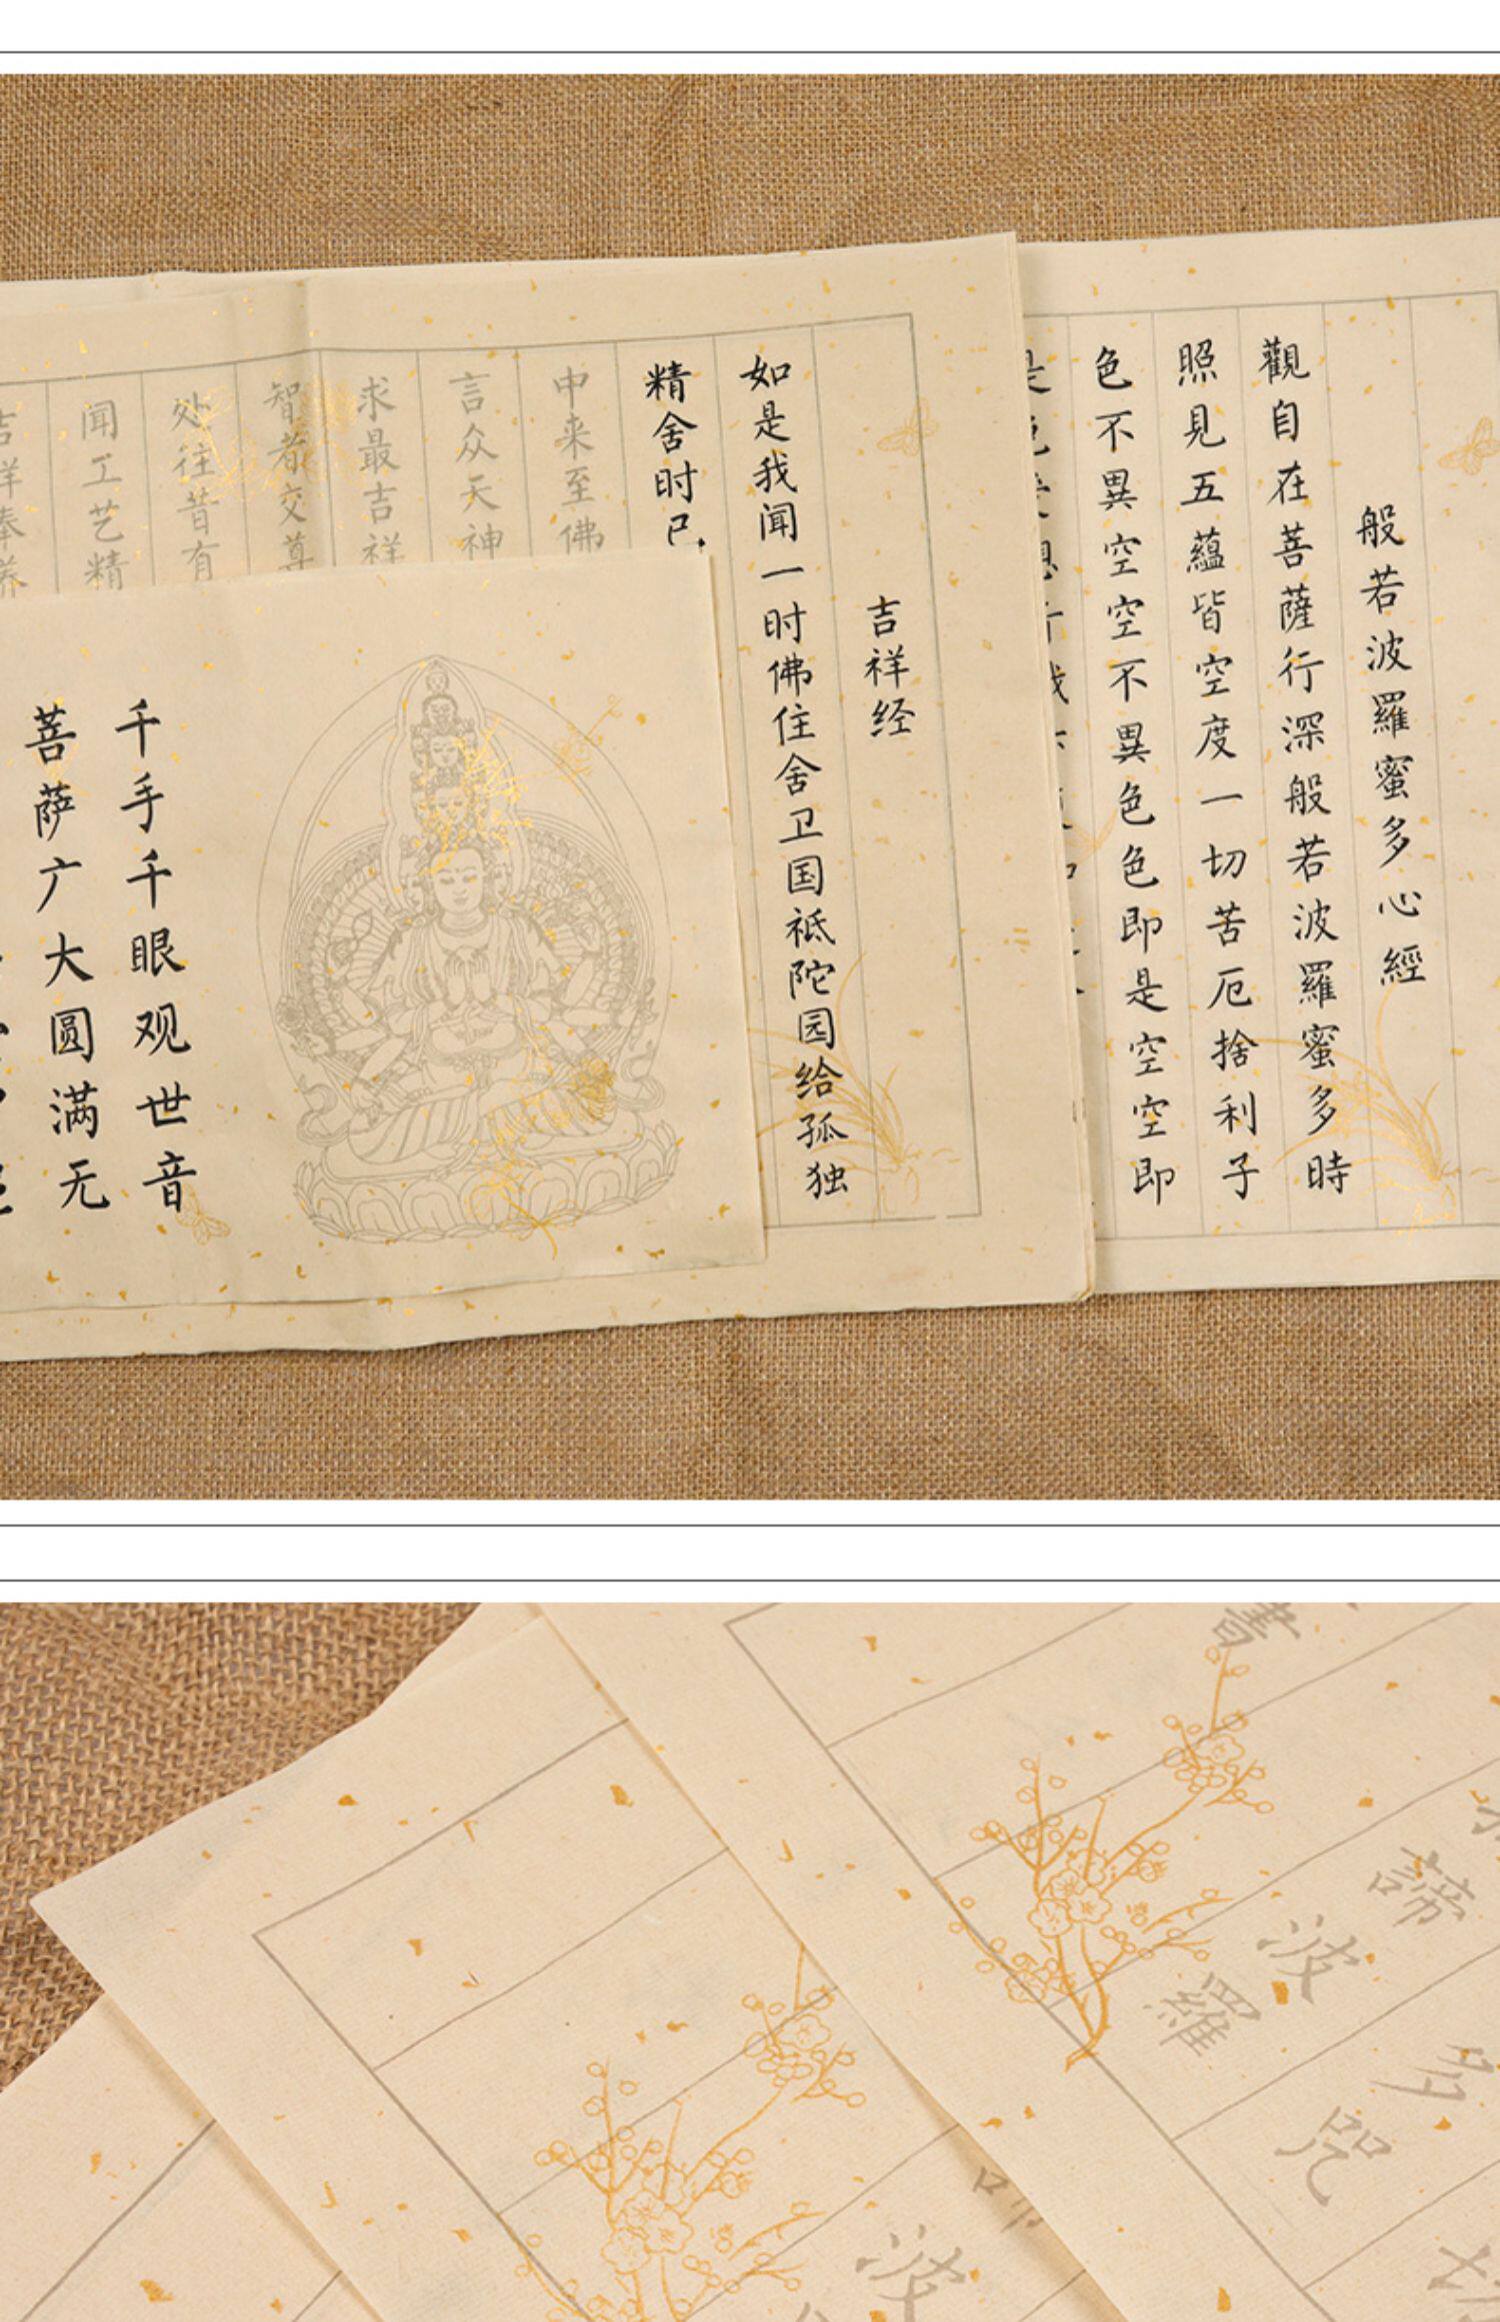 般若波羅蜜多心經
觀自在菩薩行深般若波羅蜜多時
照見五蘊皆空度一切苦厄捨利子
色不異空空不異色色即是空空即
吉祥经
如是我闻一时佛住舍卫国祇陀园给孤独
精舍时已
中来至佛
言众天神
求最吉祥
智者交尊
处往昔有
闻工艺精
吉祥奉养
千手千眼观世音
菩萨广大圆满无
書
諦
波羅
多
咒
波